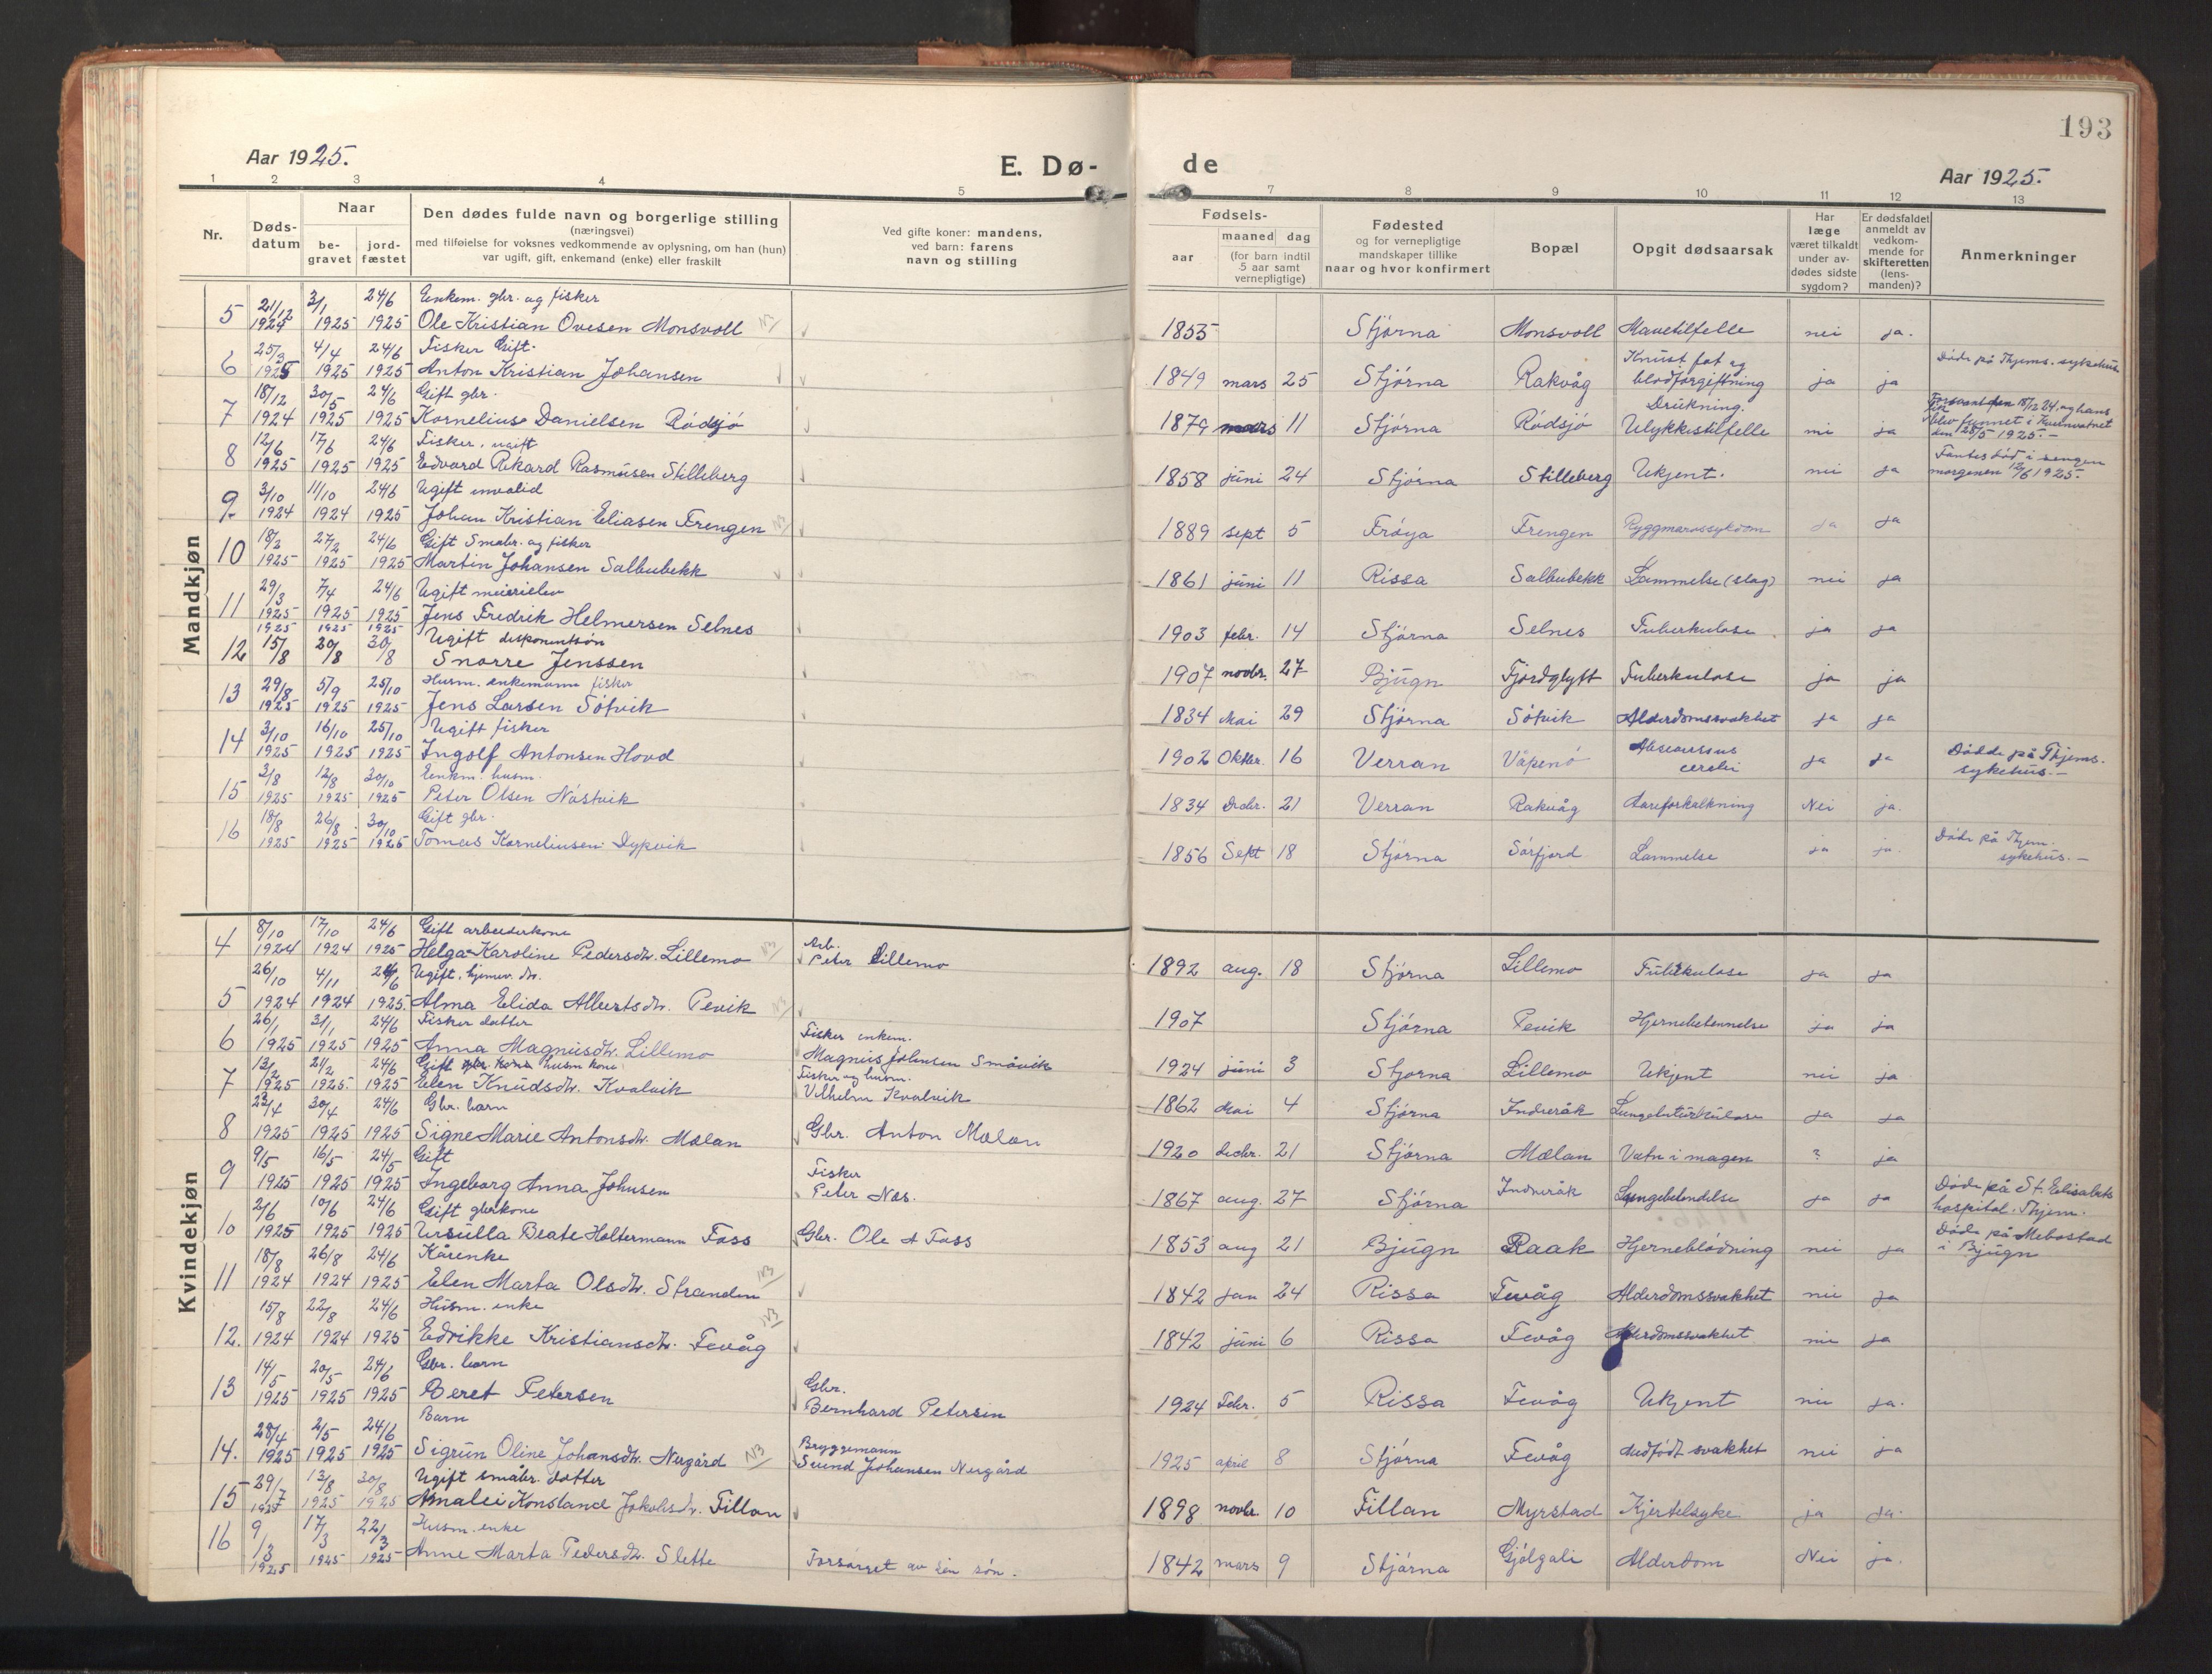 193
Aar 1925.
E. Dø- de
Aar 1925.
1 2 3 4 5 7 8 9 10 11 12 13
Nr.
Døds-datum
Naar
be-gravet
jord-fæstet
Den dødes fulde navn og borgerlige stilling
(næringsvei)
med tilføielse for voksnes vedkommende av oplysning, om han (hun)
var ugift, gift, enkemand (enke) eller fraskilt
Ved gifte koner: mandens,
ved barn: farens
navn og stilling
Fødsels-
aar
maaned dag
(for barn indtil 5 aar samt vernepligtige)
Fødested
og for vernepligtige
mandskaper tillike
naar og hvor konfirmert
Bopæl
Opgit dødsaarsak
Har læge været tilkaldt under av-dødes sidste sygdom?
Er dødsfaldet anmeldt av vedkom-mende for skifteretten (lens-manden)?
Anmerkninger
Mandkjøn
5 21/12 1924 3/1 1925 24/6 1925 Enkem. gbr. og fisker
Ole Kristian Ovesen Monsvoll 1855 Stjørna Monsvoll Mavetilfelle nei ja.
6 25/3 1925 4/4 1925 24/6 1925 Fisker Gift.
Anton Kristian Johansen 1849 mars 25 Stjørna Rakvåg Knust fot og blodforgiftning ja ja Døde på Thjems. sykehus
7 18/12 1924 30/5 1925 24/6 1925 Gift gbr.
Kornelius Danielsen Rødsjø 1879 mars 11 Stjørna Rødsjø Drukning. Ulykkestilfelle nei ja 18/12 24, og hans blev funnet i Kvernvatnet den 28/5 1925.-
8 12/6 1925 17/6 1925 24/6 1925 Fisker, ugift
Edvard Rikard Rasmusen Stilleberg 1858 juni 24 Stjørna Stilleberg Ukjent. nei ja Fantes død i sengen morgenen 12/6 1925.-
9. 3/10 1924 11/10 1924 24/6 1925 Ugift invalid
Johan Kristian Eliasen Frengen 1889 sept 5 Frøya Frengen Ryggmarvssykdom ja ja
10 18/2 1925 27/2 1925 24/6 1925 Gift Småbr. og fisker
Martin Johansen Salbubekk 1861 juni 11 Rissa Salbubekk Lammelse (slag) nei ja
11 29/3 1925 7/4 1925 24/6 1925 Ugift meierielev
Jens Fredrik Helmersen Selnes 1903 febr. 14 Stjørna Selnes Tuberkulose ja ja
12 1925 15/8 1925 20/8 1925 30/8 Ugift disponentsøn
Snorre Jenssen 1907 novbr. 27 Bjugn Fjordgløtt Tuberkulose ja ja
13 29/8 1925 5/9 1925 25/10 1925 Husm. enkemann fisker
Jens Larsen Søtvik 1834 Mai 29 Stjørna Søtvik Alderdomssvakhet ja ja
14 3/10 1925 16/10 1925 25/10 1925 Ugift fisker
Ingolf Antonsen Hovd 1902 Oktbr. 16 Verran Våpenø cerebri ja ja Dødde på Thjems. sykehus.-
15 3/8 1925 12/8 1925 30/10 1925 Enkm. husm.
Peter Olsen Nøstvik 1834 Decbr. 21 Verran Rakvåg Aareforkalkning Nei ja.
16 18/8 1925 26/8 1925 30/10 1925 Gift gbr.
Tomas Korneliusen Dypvik 1856 Sept 18 Stjørna Sørfjord Lammelse ja ja. Døde på Thjem. sykehus.-
Kvindekjøn
4 8/10 1924 17/10 1924 24/6 1925 Gift arbeiderkone
Helga Karoline Pedersdtr. Lillemo Arb. Peter Lillemo 1892 aug. 18 Stjørna Lillemo Tuberkulose ja ja
5 26/10 1924 4/11 1924 24/6 1925. Ugift, hjemv. dtr.
Alma Elida Albertsdtr. Pevik 1907 Stjørna Pevik Hjernebetennelse ja ja
6 26/1 1925 31/1 1925 24/6 1925 Fisker datter
Anna Magnusdtr. Lillemo Fisker enkem. Magnus Johnsen Småvik 1924 juni 3 Stjørna Lillemo Ukjent nei ja
7 13/2 1925 21/2 1925 24/6 1925 Gift husm kone
Elen Knudsdtr. Kvalvik Fisker og husm. Vilhelm Kvalvik 1862 Mai 4 Stjørna Indreråk Lungetuberkulose ja ja
8 23/4 1925 30/4 1925 24/6 1925 Gbr. barn
Signe Marie Antonsdtr. Mælan Gbr. Anton Mælan 1920 Decbr. 21 Stjørna Mælan Vatn i magen ? ja
9 9/5 1925 16/5 1925 24/5 1925 Gift
Ingeborg Anna Johnsen Fisker Peter Næs. 1867 aug. 27 Stjørna Indreråk Lungebetendelse ja ja Døde på St. Elisabets hospital. Thjem.
10 2/6 1925 10/6 1925 24/6 1925 Gift gbrkone
Ursulla Beate Holtermann Foss Gbr. Ole A Foss 1853 aug 21 Bjugn Raak Hjerneblødning nei ja Døde på Mebostad i Bjugn
11 18/8 1924 26/8 1924 24/6 1925 Kårenke
Elen Marta Olsdtr. Stranden 1842 jan 24 Rissa Fevåg Alderdomssvakhet nei ja
12. 15/8 1924 22/8 1924 24/6 1925 Husm. enke
Edvikke Kristiansdtr. Fevåg 1842 juni 6 Rissa Fevåg Alderdomssvakhet nei ja
13 14/5 1925 20/5 1925 24/6 1925 Gbr. barn
Beret Petersen Gbr. Bernhard Petersen 1924 Febr. 5 Rissa Fevåg Ukjent nei ja.
14. 28/4 1925 2/5 1925 24/6 1925 Barn
Sigrun Oline Johansdtr. Nergård Bryggemann Svend Johansen Nergård 1925 april 8 Stjørna Fevåg Medfødt svakhet nei ja
15 29/7 1925 13/8 1925 30/8 1925 Ugift småbr. datter
Amalei Konstance Jakobsdtr. Fillan 1898 novbr. 10 Fillan Myrstad Kjertelsyke ja ja.
16 9/3 1925 17/3 1925 22/3 1925 Husm. enke
Anne Marta Pedersdtr. Slette Forsørget av sin søn. 1842 mars 9 Stjørna Gjølgali Alderdom Nei ja.